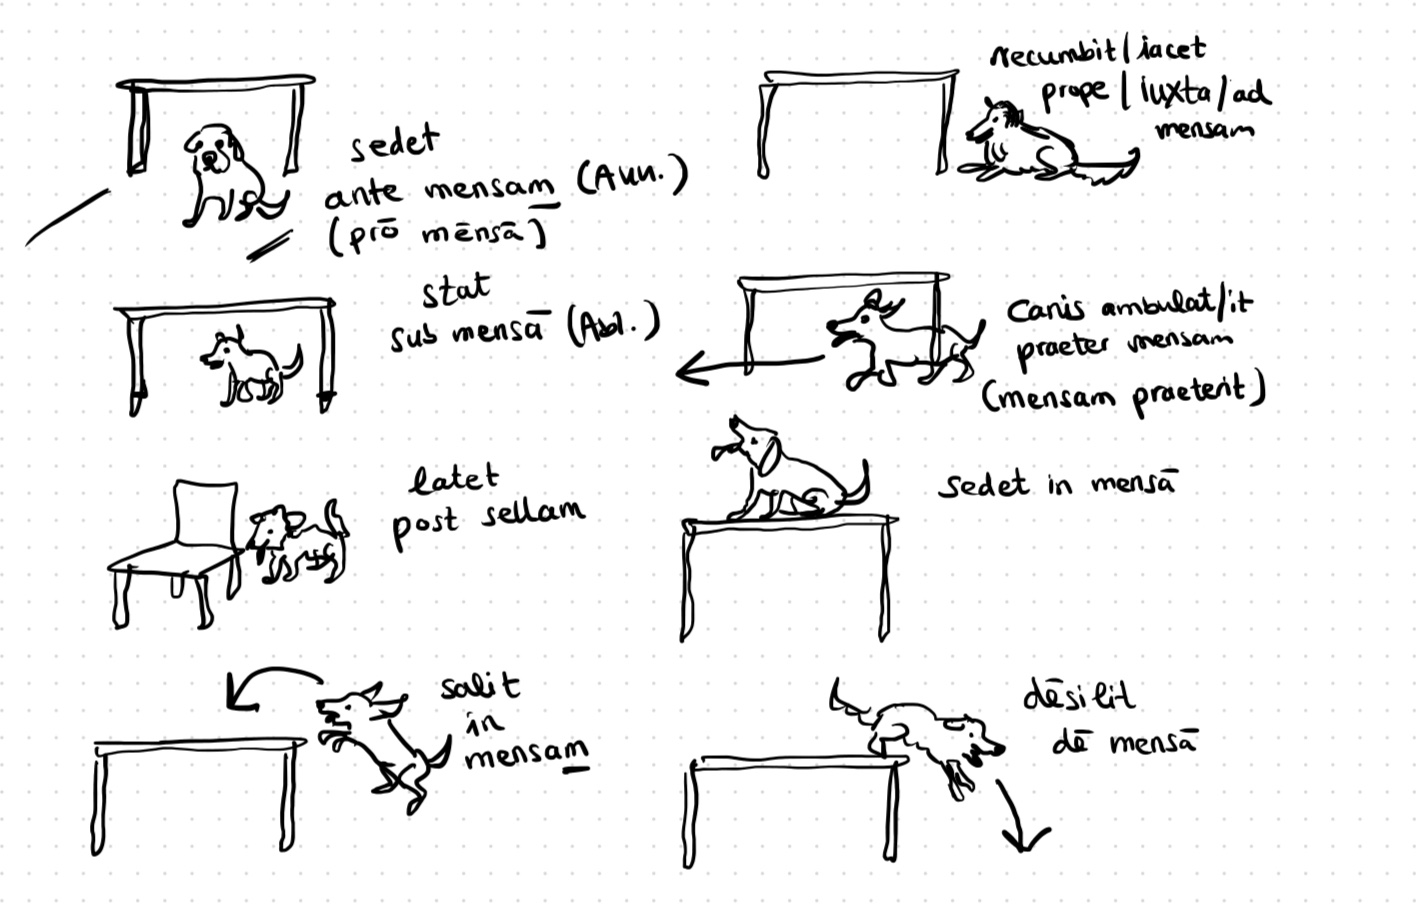 sedet
ante mensam (Akk.)
(prō mēnsā)
recumbit/iacet
prope/iuxta/ad
mensam
stat
sub mensā (Abl.)
Canis ambulat/it
praeter mensam
(mensam praeterit)
latet
post sellam
sedet in mensā
salit
in
mensam
dēsilit
dē mensā